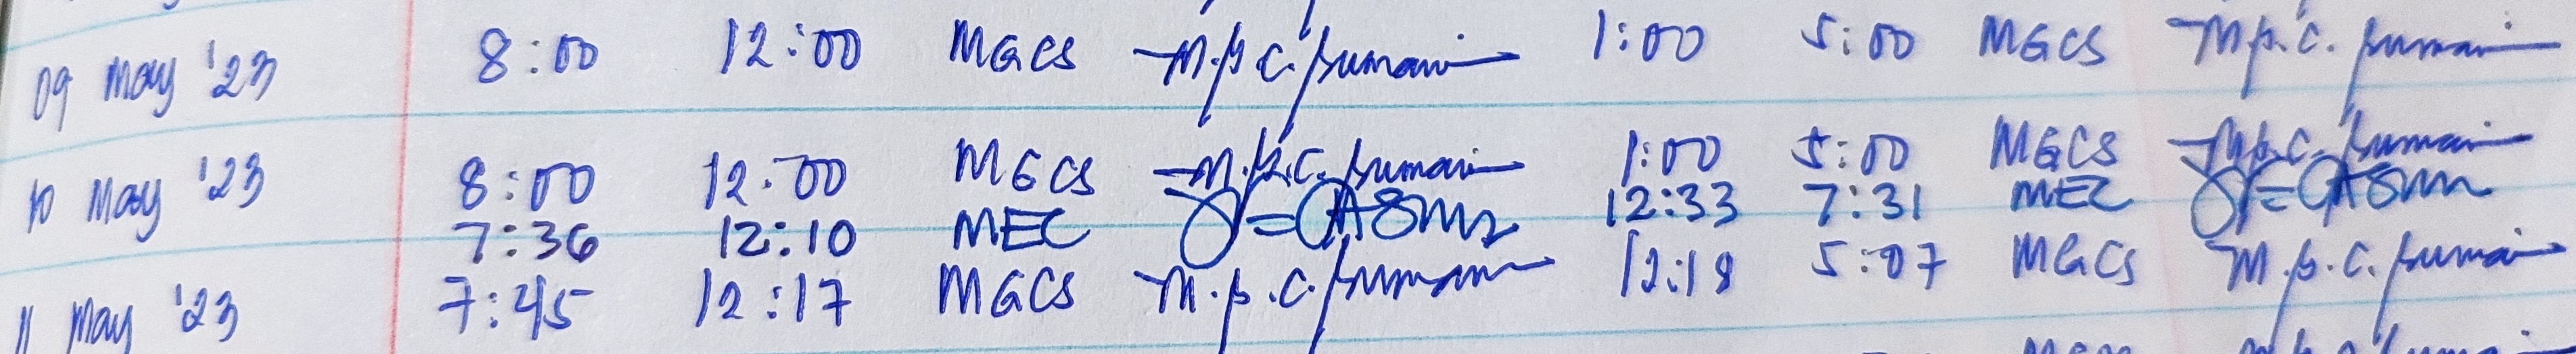 09 May '23 8:00 12:00 MGCS M.G.C. 1:00 5:00 MGCS M.G.C.
10 May '23 8:00 12:00 MGCS M.G.C. 1:00 5:00 MGCS M.G.C.
7:36 12:10 MEC 12:33 7:31 MEC
11 May '23 7:45 12:17 MGCS M.G.C. 12:18 5:07 MGCS M.G.C.